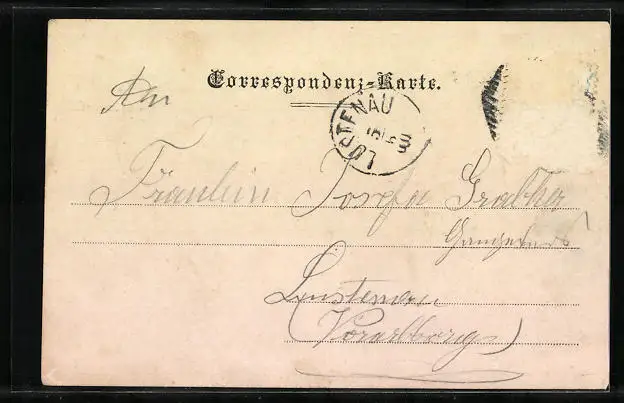 Correspondenz-Karte.
An
LUSTENAU
Fräulein Josefa Grabher
Lustenau
(Vorarlberg)